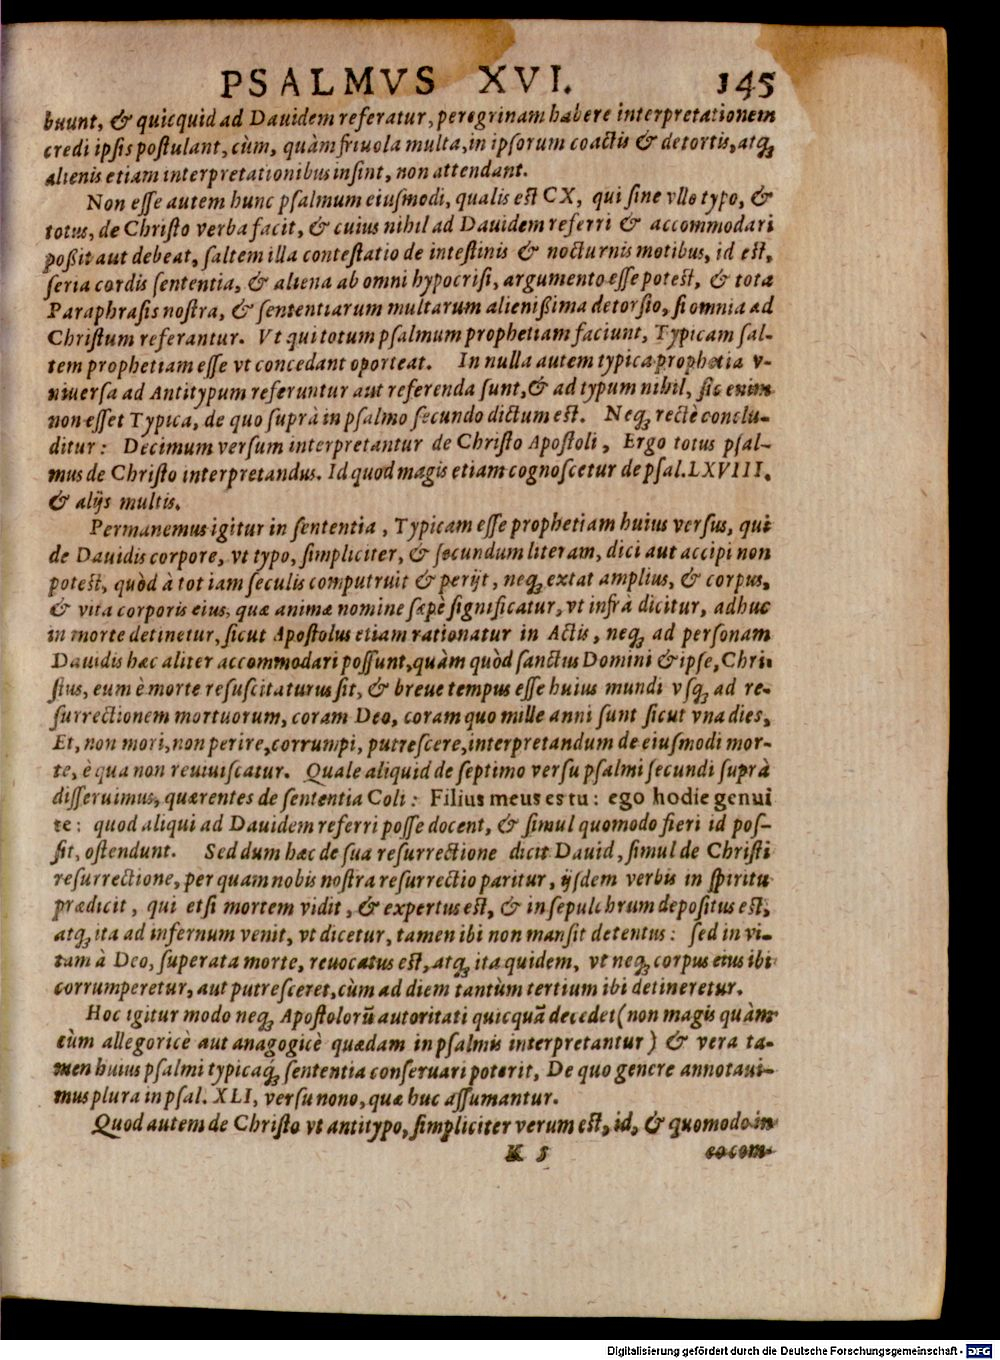 PSALMVS XVI. 145
buunt, & quicquid ad Dauidem referatur, peregrinam habere interpretationem
credi ipsis poſtulant, cùm, quàm friuola multa, in ipſorum coactis & detortis, atq;
alienis etiam interpretationibus inſint, non attendant.
Non eſſe autem hunc pſalmum eiuſmodi, qualis eſt CX, qui ſine vllo typo, &
totus, de Chriſto verba facit, & cuius nihil ad Dauidem referri & accommodari
poßit aut debeat, ſaltem illa conteſtatio de inteſtinis & nocturnis motibus, id eſt,
ſeria cordis ſententia, & aliena ab omni hypocriſi, argumento eſſe poteſt, & tota
Paraphraſis noſtra, & ſententiarum multarum alienißima detorſio, ſi omnia ad
Chriſtum referantur. Vt qui totum pſalmum prophetiam faciunt, Typicam ſal-
tem prophetiam eſſe vt concedant oporteat. In nulla autem typica prophetia v-
niuerſa ad Antitypum referuntur aut referenda ſunt, & ad typum nihil, ſic enim
non eſſet Typica, de quo ſuprà in pſalmo ſecundo dictum eſt. Neq; rectè conclu-
ditur: Decimum verſum interpretantur de Chriſto Apoſtoli, Ergo totus pſal-
mus de Chriſto interpretandus. Id quod magis etiam cognoſcetur de pſal. LXVIII.
& alijs multis.
Permanemus igitur in ſententia, Typicam eſſe prophetiam huius verſus, qui
de Dauidis corpore, vt typo, ſimpliciter, & ſecundum literam, dici aut accipi non
poteſt, quòd à tot iam ſeculis computruit & perijt, neq; extat amplius, & corpus,
& vita corporis eius, quæ animæ nomine ſæpè ſignificatur, vt infrà dicitur, adhuc
in morte detinetur, ſicut Apoſtolus etiam rationatur in Actis, neq; ad perſonam
Dauidis hæc aliter accommodari poſſunt, quàm quòd ſanctus Domini & ipſe, Chri-
ſtus, eum è morte reſuſcitaturus ſit, & breue tempus eſſe huius mundi vſq; ad re-
ſurrectionem mortuorum, coram Deo, coram quo mille anni ſunt ſicut vna dies,
Et, non mori, non perire, corrumpi, putreſcere, interpretandum de eiuſmodi mor-
te, è qua non reuiuiſcatur. Quale aliquid de ſeptimo verſu pſalmi ſecundi ſuprà
diſſeruimus, quærentes de ſententia Coli: Filius meus es tu: ego hodie genui
te: quod aliqui ad Dauidem referri poſſe docent, & ſimul quomodo fieri id poſ-
ſit, oſtendunt. Sed dum hæc de ſua reſurrectione dicit Dauid, ſimul de Chriſti
reſurrectione, per quam nobis noſtra reſurrectio paritur, ijſdem verbis in ſpiritu
prædicit, qui etſi mortem vidit, & expertus eſt, & in ſepulchrum depoſitus eſt,
atq; ita ad infernum venit, vt dicetur, tamen ibi non manſit detentus: ſed in vi-
tam à Deo, ſuperata morte, reuocatus eſt, atq; ita quidem, vt neq; corpus eius ibi
corrumperetur, aut putreſceret, cùm ad diem tantùm tertium ibi detineretur.
Hoc igitur modo neq; Apoſtolorũ autoritati quicquã decedet (non magis quàm
cùm allegoricè aut anagogicè quædam in pſalmis interpretantur) & vera ta-
men huius pſalmi typicaq́; ſententia conſeruari poterit, De quo genere annotaui-
mus plura in pſal. XLI, verſu nono, quæ huc aſſumantur.
Quod autem de Chriſto vt antitypo, ſimpliciter verum eſt, id, & quomodo in
K 5 eo com-
Digitalisierung gefördert durch die Deutsche Forschungsgemeinschaft - DFG